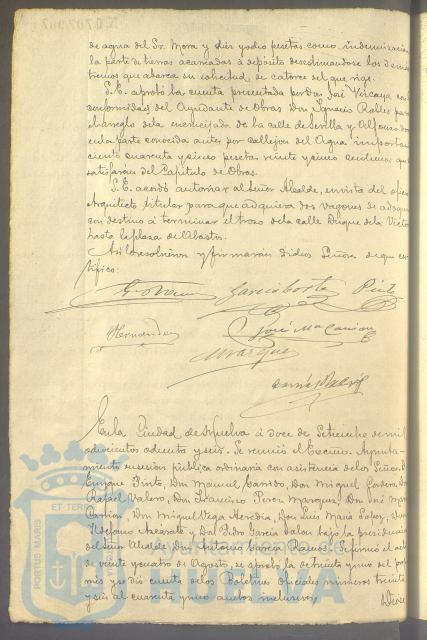 de agua del Sr. Mora y diez y ocho pesetas como indemnización
la parte de tierras acarreadas a depósito desestimandose los demas
extremos que abarca su solicitud de catorce del que rige.
S.E. aprobó la cuenta presentada por don José Vizcaya con la
conformidad del Ayudante de Obras Don Ignacio Robles para
el arreglo de la encrucijada de la calle de Sevilla y Alfonso doce
en la parte conocida antes por callejon del Agua importante
ciento cuarenta y cinco pesetas veinte y cinco centimos que
satisfarán del Capitulo de Obras.
S.E. acordó autorizar al Señor Alcalde, en vista del oficio
Arquitecto titular para que adquiera dos vagones de adoquines
con destino a terminar el trozo de la calle Duque de la Victoria
hasta la plaza de Abastos.
Asi lo resolvieron y firmarán dichos Señores de que cer
tifico:
García Cortés Pinto
Hernandez José Mª Carrion
Marquez
En la Ciudad de Huelva á doce de Setiembre de mil
ochocientos ochenta y seis. Se reunió el Excmo. Ayunta-
miento en sesion pública ordinaria con asistencia de los Señores D.
Enrique Pinto, Don Manuel Garrido, Don Miguel Cordero, Don
Rafael Valero, Don Francisco Perez Marquez, Don José María
Carrion, Don Miguel Vega Heredia, Don Luis Maria Lopez, Don
Ildefonso Azcarate y Don Pedro García Jalon bajo la presidencia
del Señor Alcalde Don Antonio García Ramos. Se firmó el acta
de veinte y cuatro de Agosto, se aprobó la de treinta y uno del pro
mes y se dió cuenta de los Boletines Oficiales números treinta
y seis al cuarenta y uno ambos inclusives,
PORTUS MARIS
ET TERRE
HUELVA